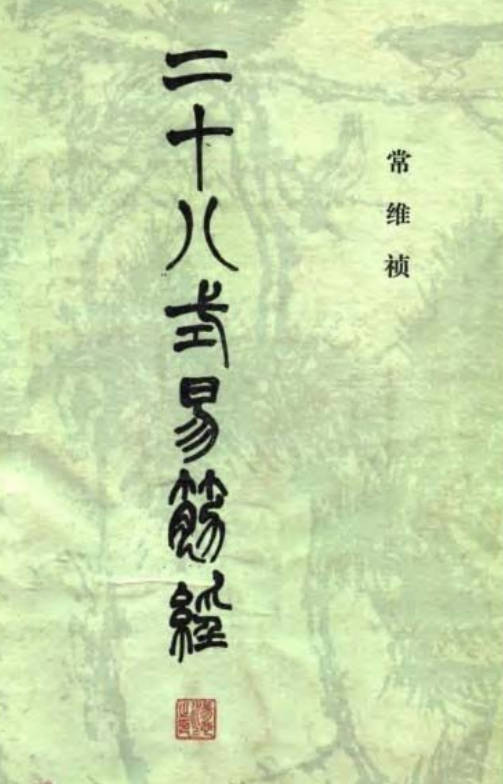 常维祯
二十八式易筋經